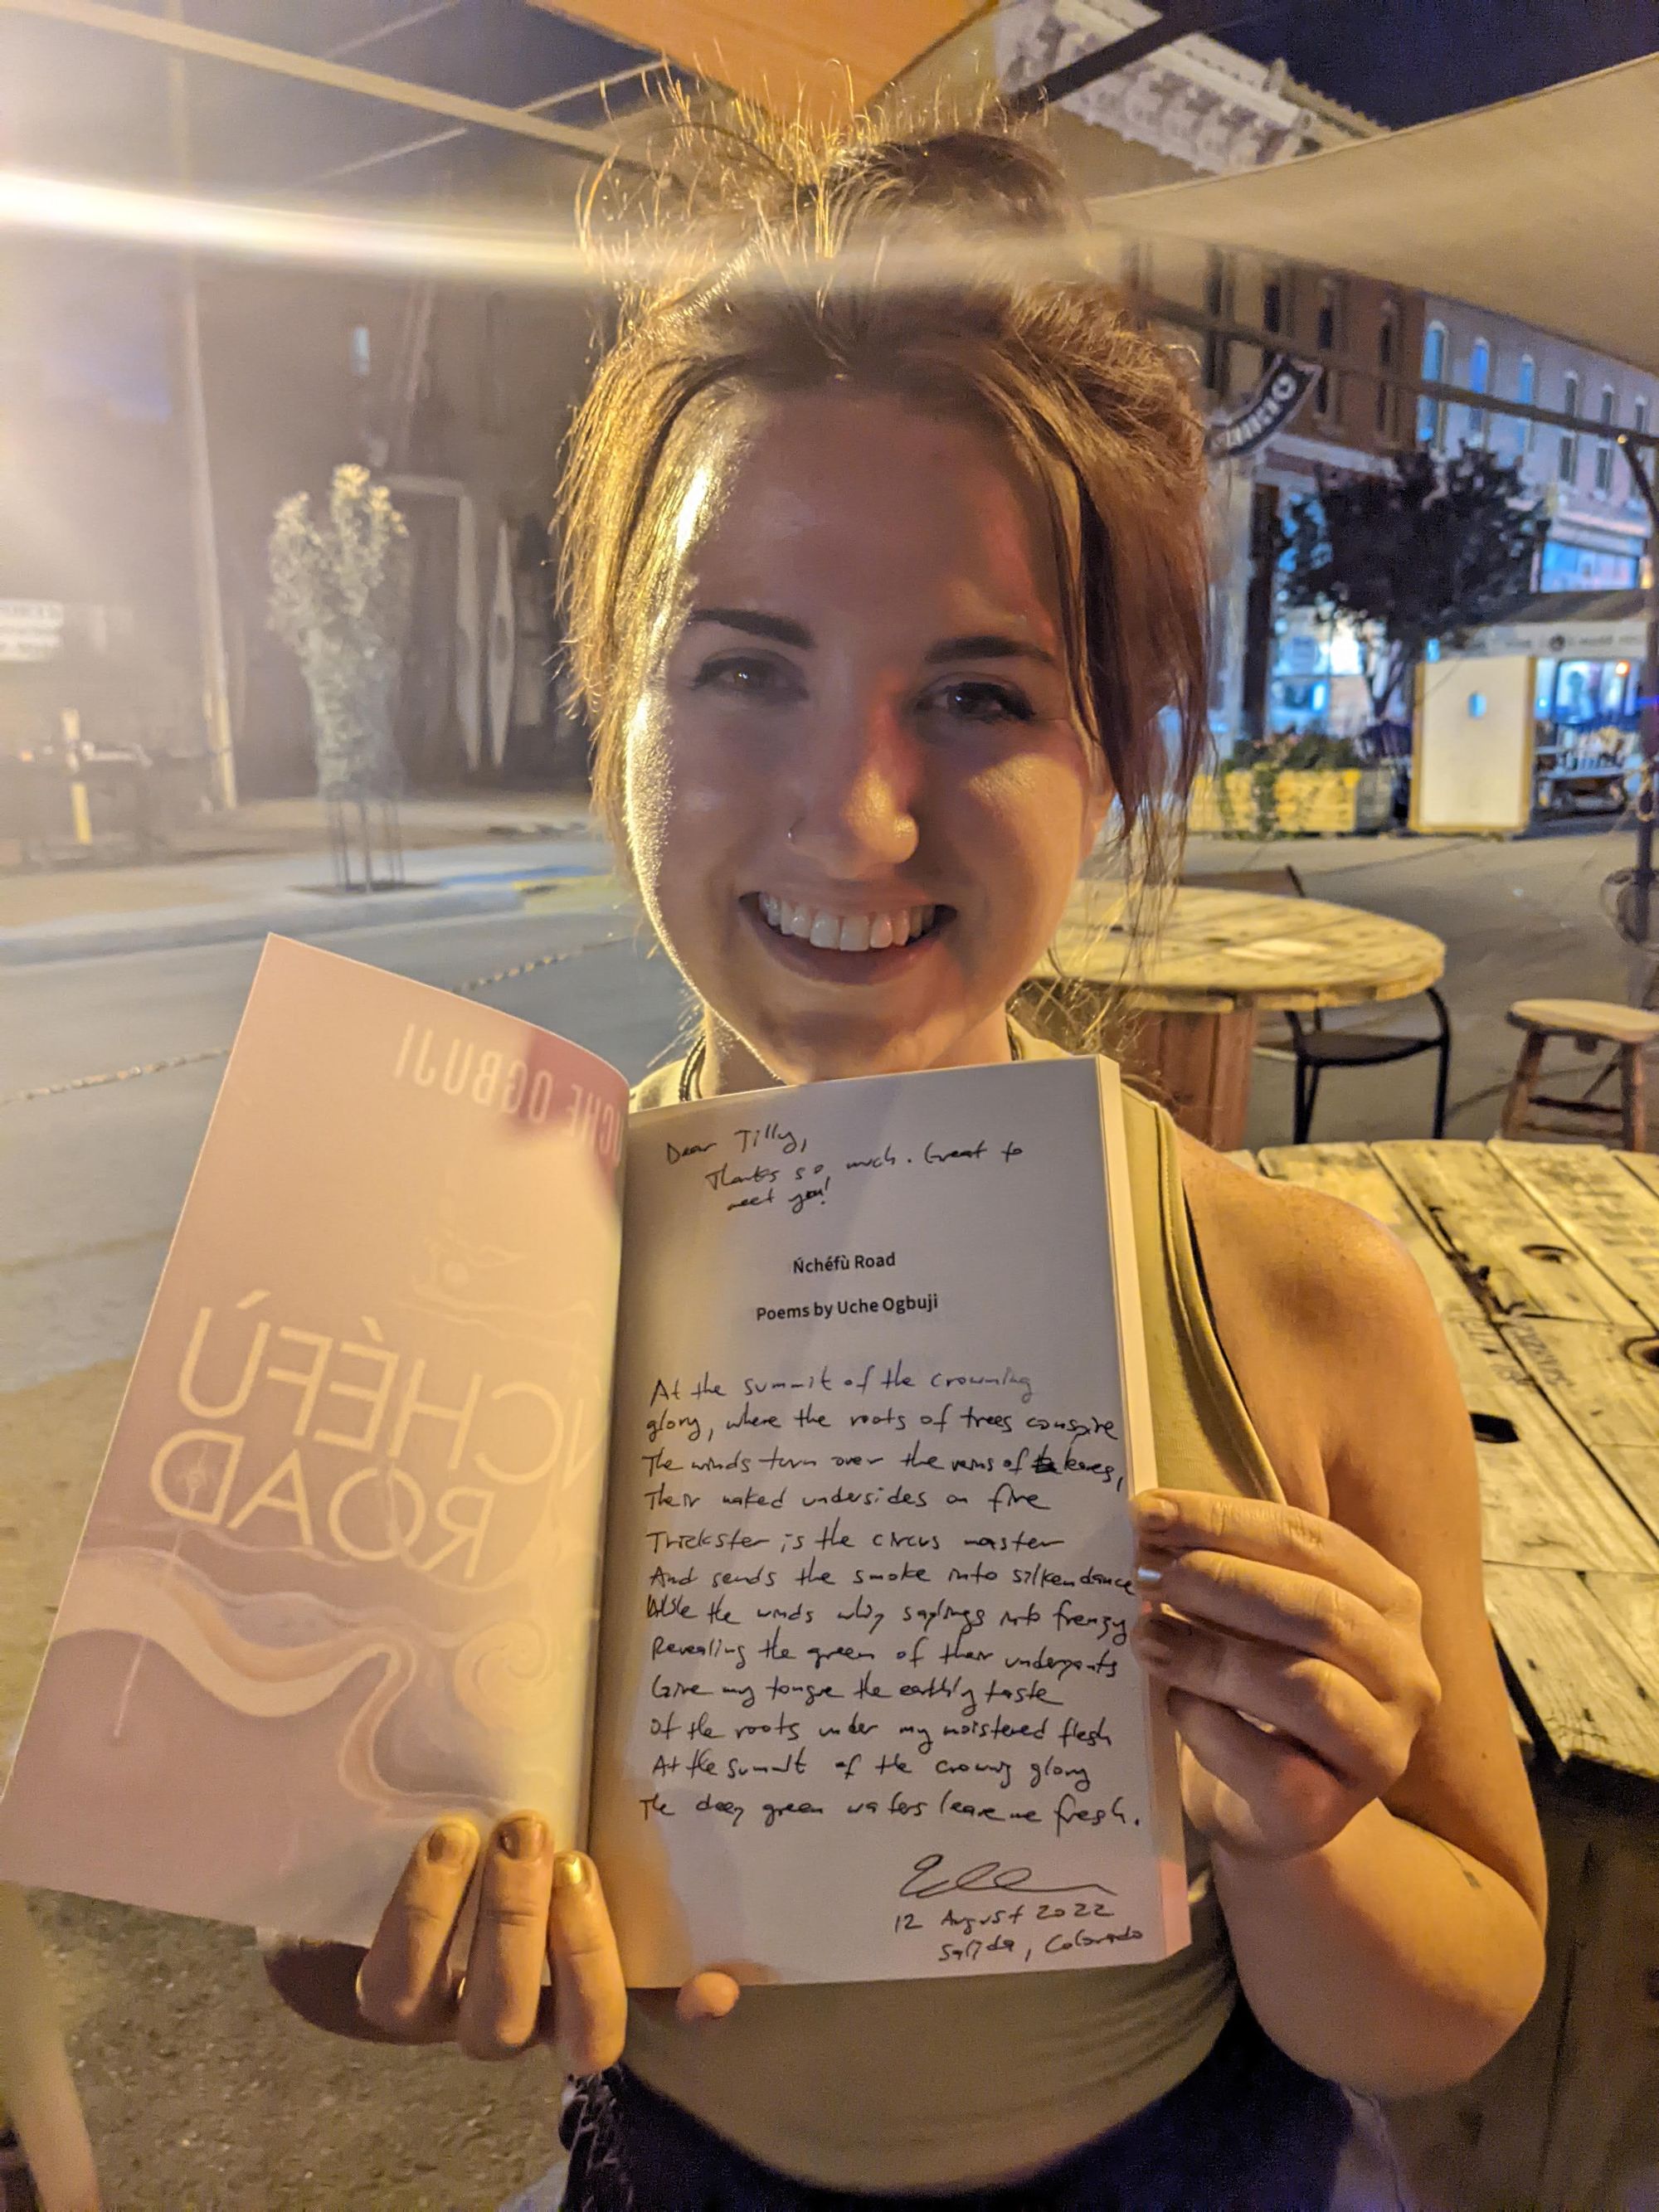 UCHE OGBUJI
ŃCHÉFÙ
ROAD
Dear Tilly,
Thanks so much. Great to
meet you!
Ńchéfù Road
Poems by Uche Ogbuji
At the summit of the crowning
glory, where the roots of trees conspire
The winds turn over the veins of leaves,
Their naked undersides on fire
Trickster is the circus master
And sends the smoke into silken dance
While the winds whip saplings into frenzy
Revealing the green of their underpants
Give my tongue the earthly taste
Of the roots under my moistened flesh
At the summit of the crowning glory
The deep green waters leave me fresh.
12 August 2022
Salida, Colorado